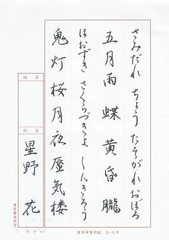 さみだれ ちょう たそがれ おぼろ
五月雨 蝶 黄昏 朧
ほおずき さくらづきよ しんきろう
鬼灯 桜月夜 蜃気楼
氏名
星野 花